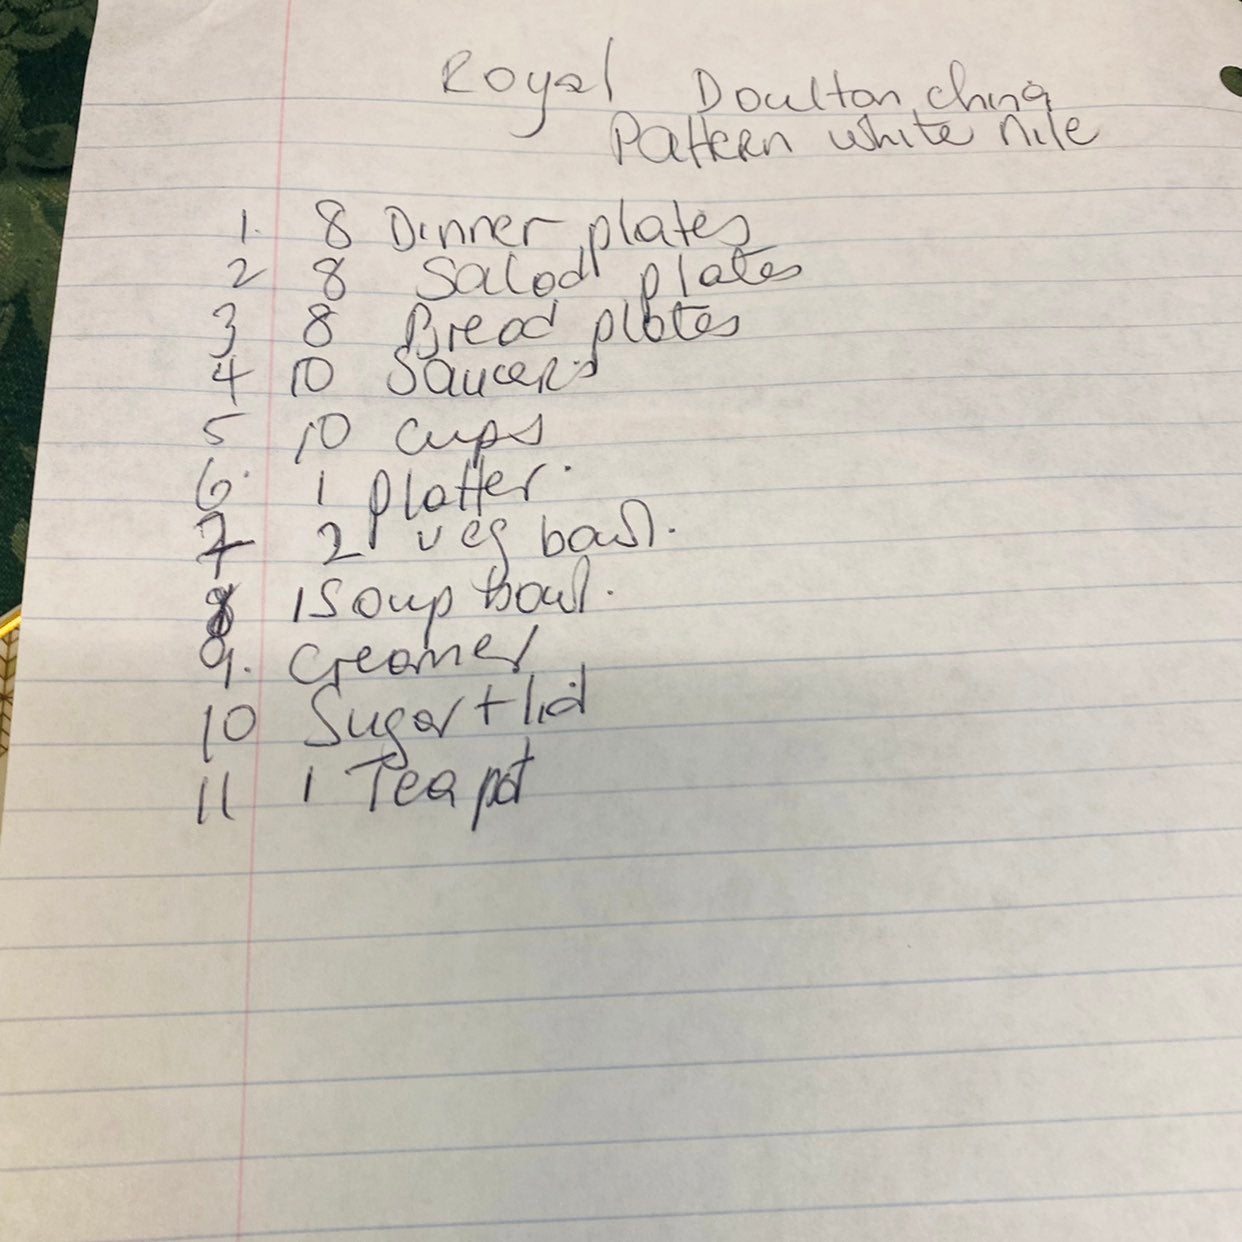 Royal Doulton china
Pattern white nile
1. 8 Dinner plates
2 8 Salad plates
3 8 Bread plates
4 10 Saucers
5 10 cups
6. 1 platter.
7 2 veg bowl.
8 1 Soup bowl.
9. Creamer
10 Sugar + lid
11 1 Tea pot